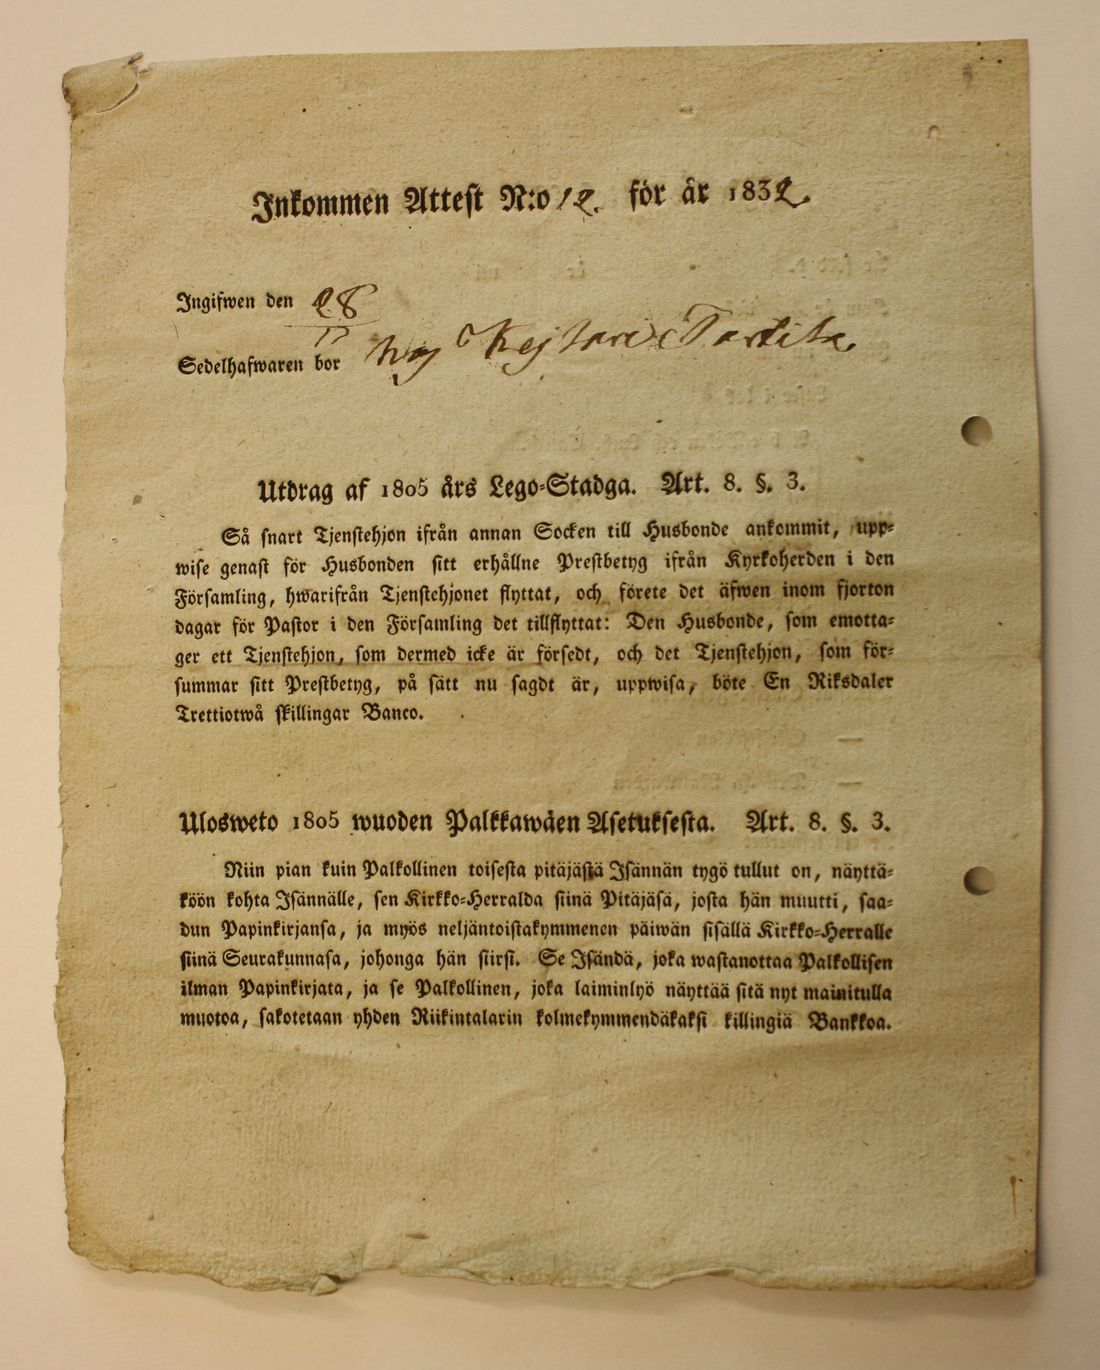 Inkommen Attest N:o 12. för år 1832.
Ingifwen den 28
Sedelhafwaren bor hoj
Utdrag af 1805 års Lego=Stadga. Art. 8. §. 3.
Så snart Tjenstehjon ifrån annan Socken till Husbonde ankommit, upp=
wise genast för Husbonden sitt erhållne Prestbetyg ifrån Kyrkoherden i den
Församling, hwarifrån Tjenstehjonet flyttat, och förete det äfwen inom fjorton
dagar för Pastor i den Församling det tillflyttat: Den Husbonde, som emotta=
ger ett Tjenstehjon, som dermed icke är försedt, och det Tjenstehjon, som för=
summar sitt Prestbetyg, på sätt nu sagdt är, uppwisa, böte En Riksdaler
Trettiotwå skillingar Banco.
Ulosweto 1805 wuoden Palkkawäen Asetuksesta. Art. 8. §. 3.
Niin pian kuin Palkollinen toisesta pitäjästä Isännän tygö tullut on, näyttä=
köön kohta Isännälle, sen Kirkko=Herralda siinä Pitäjäsä, josta hän muutti, saa=
dun Papinkirjansa, ja myös neljäntoistakymmenen päiwän sisällä Kirkko=Herralle
siinä Seurakunnasa, johonga hän siirsi. Se Isändä, joka wastanottaa Palkollisen
ilman Papinkirjata, ja se Palkollinen, joka laiminlyö näyttää sitä nyt mainitulla
muotoa, sakotetaan yhden Riikintalarin kolmekymmendäkaksi killingiä Bankkoa.